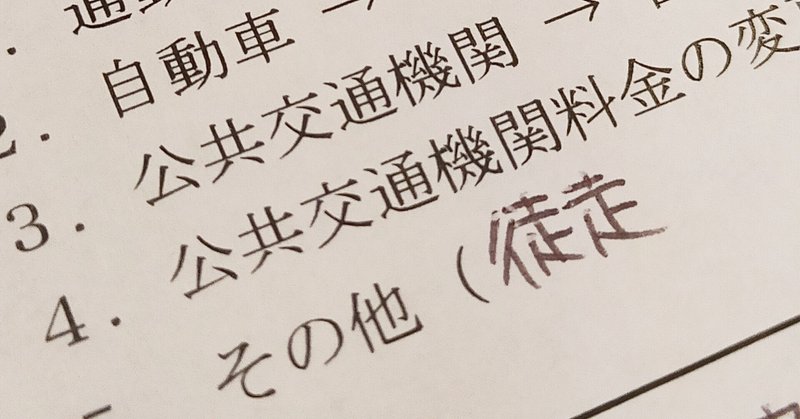 2. 自動車 →
3. 公共交通機関 →
4. 公共交通機関料金の変
その他 (徒走